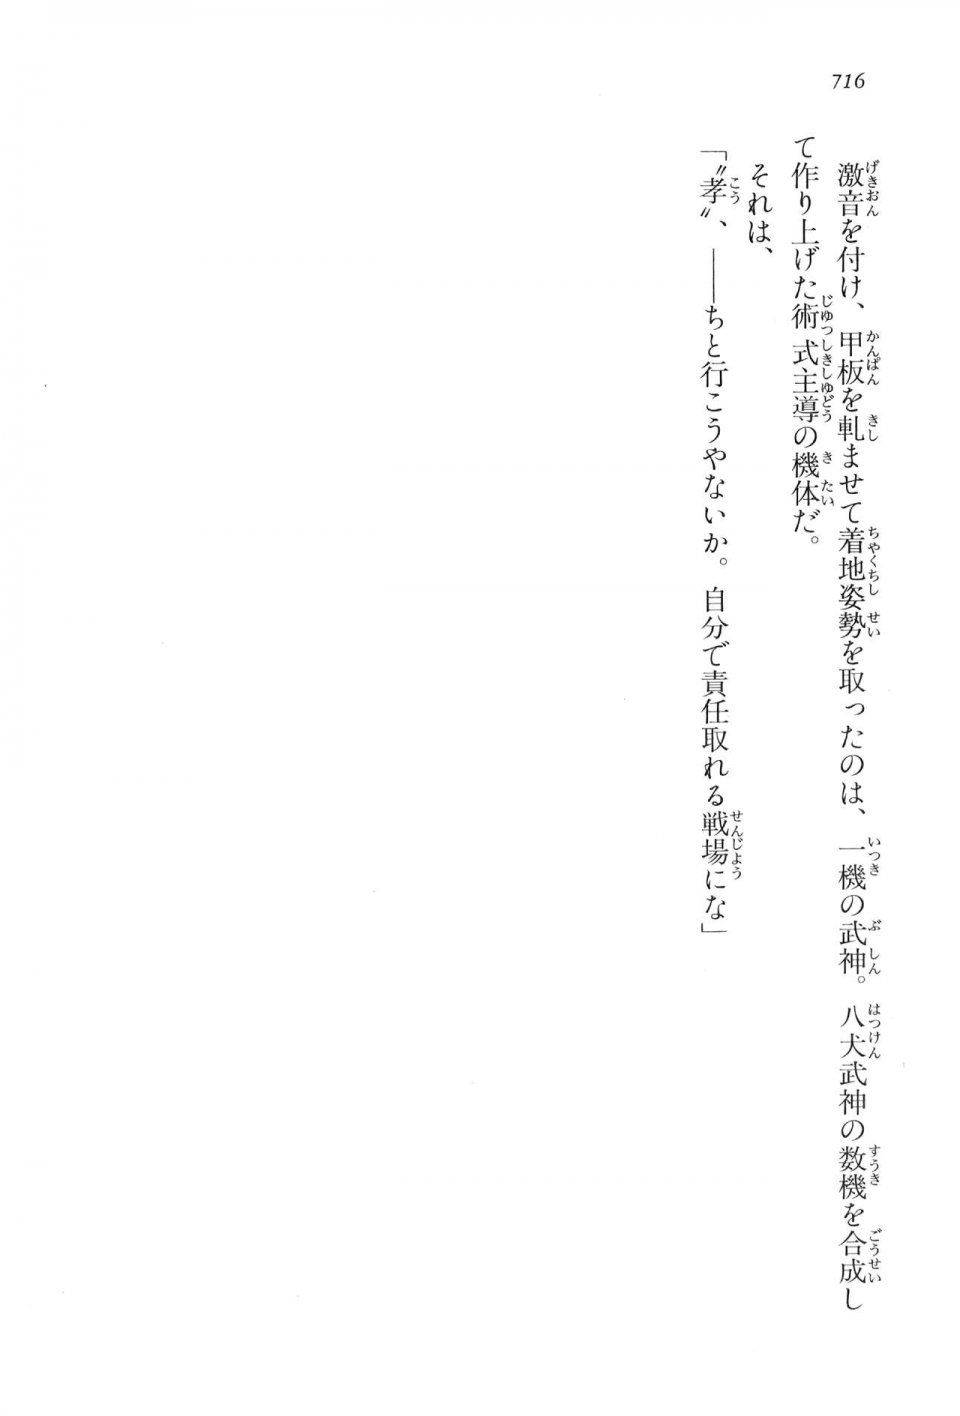 716
激音を付け、甲板を軋ませて着地姿勢を取ったのは、一機の武神。八犬武神の数機を合成し
て作り上げた術式主導の機体だ。
それは、
「〝孝〟、――ちと行こうやないか。自分で責任取れる戦場にな」